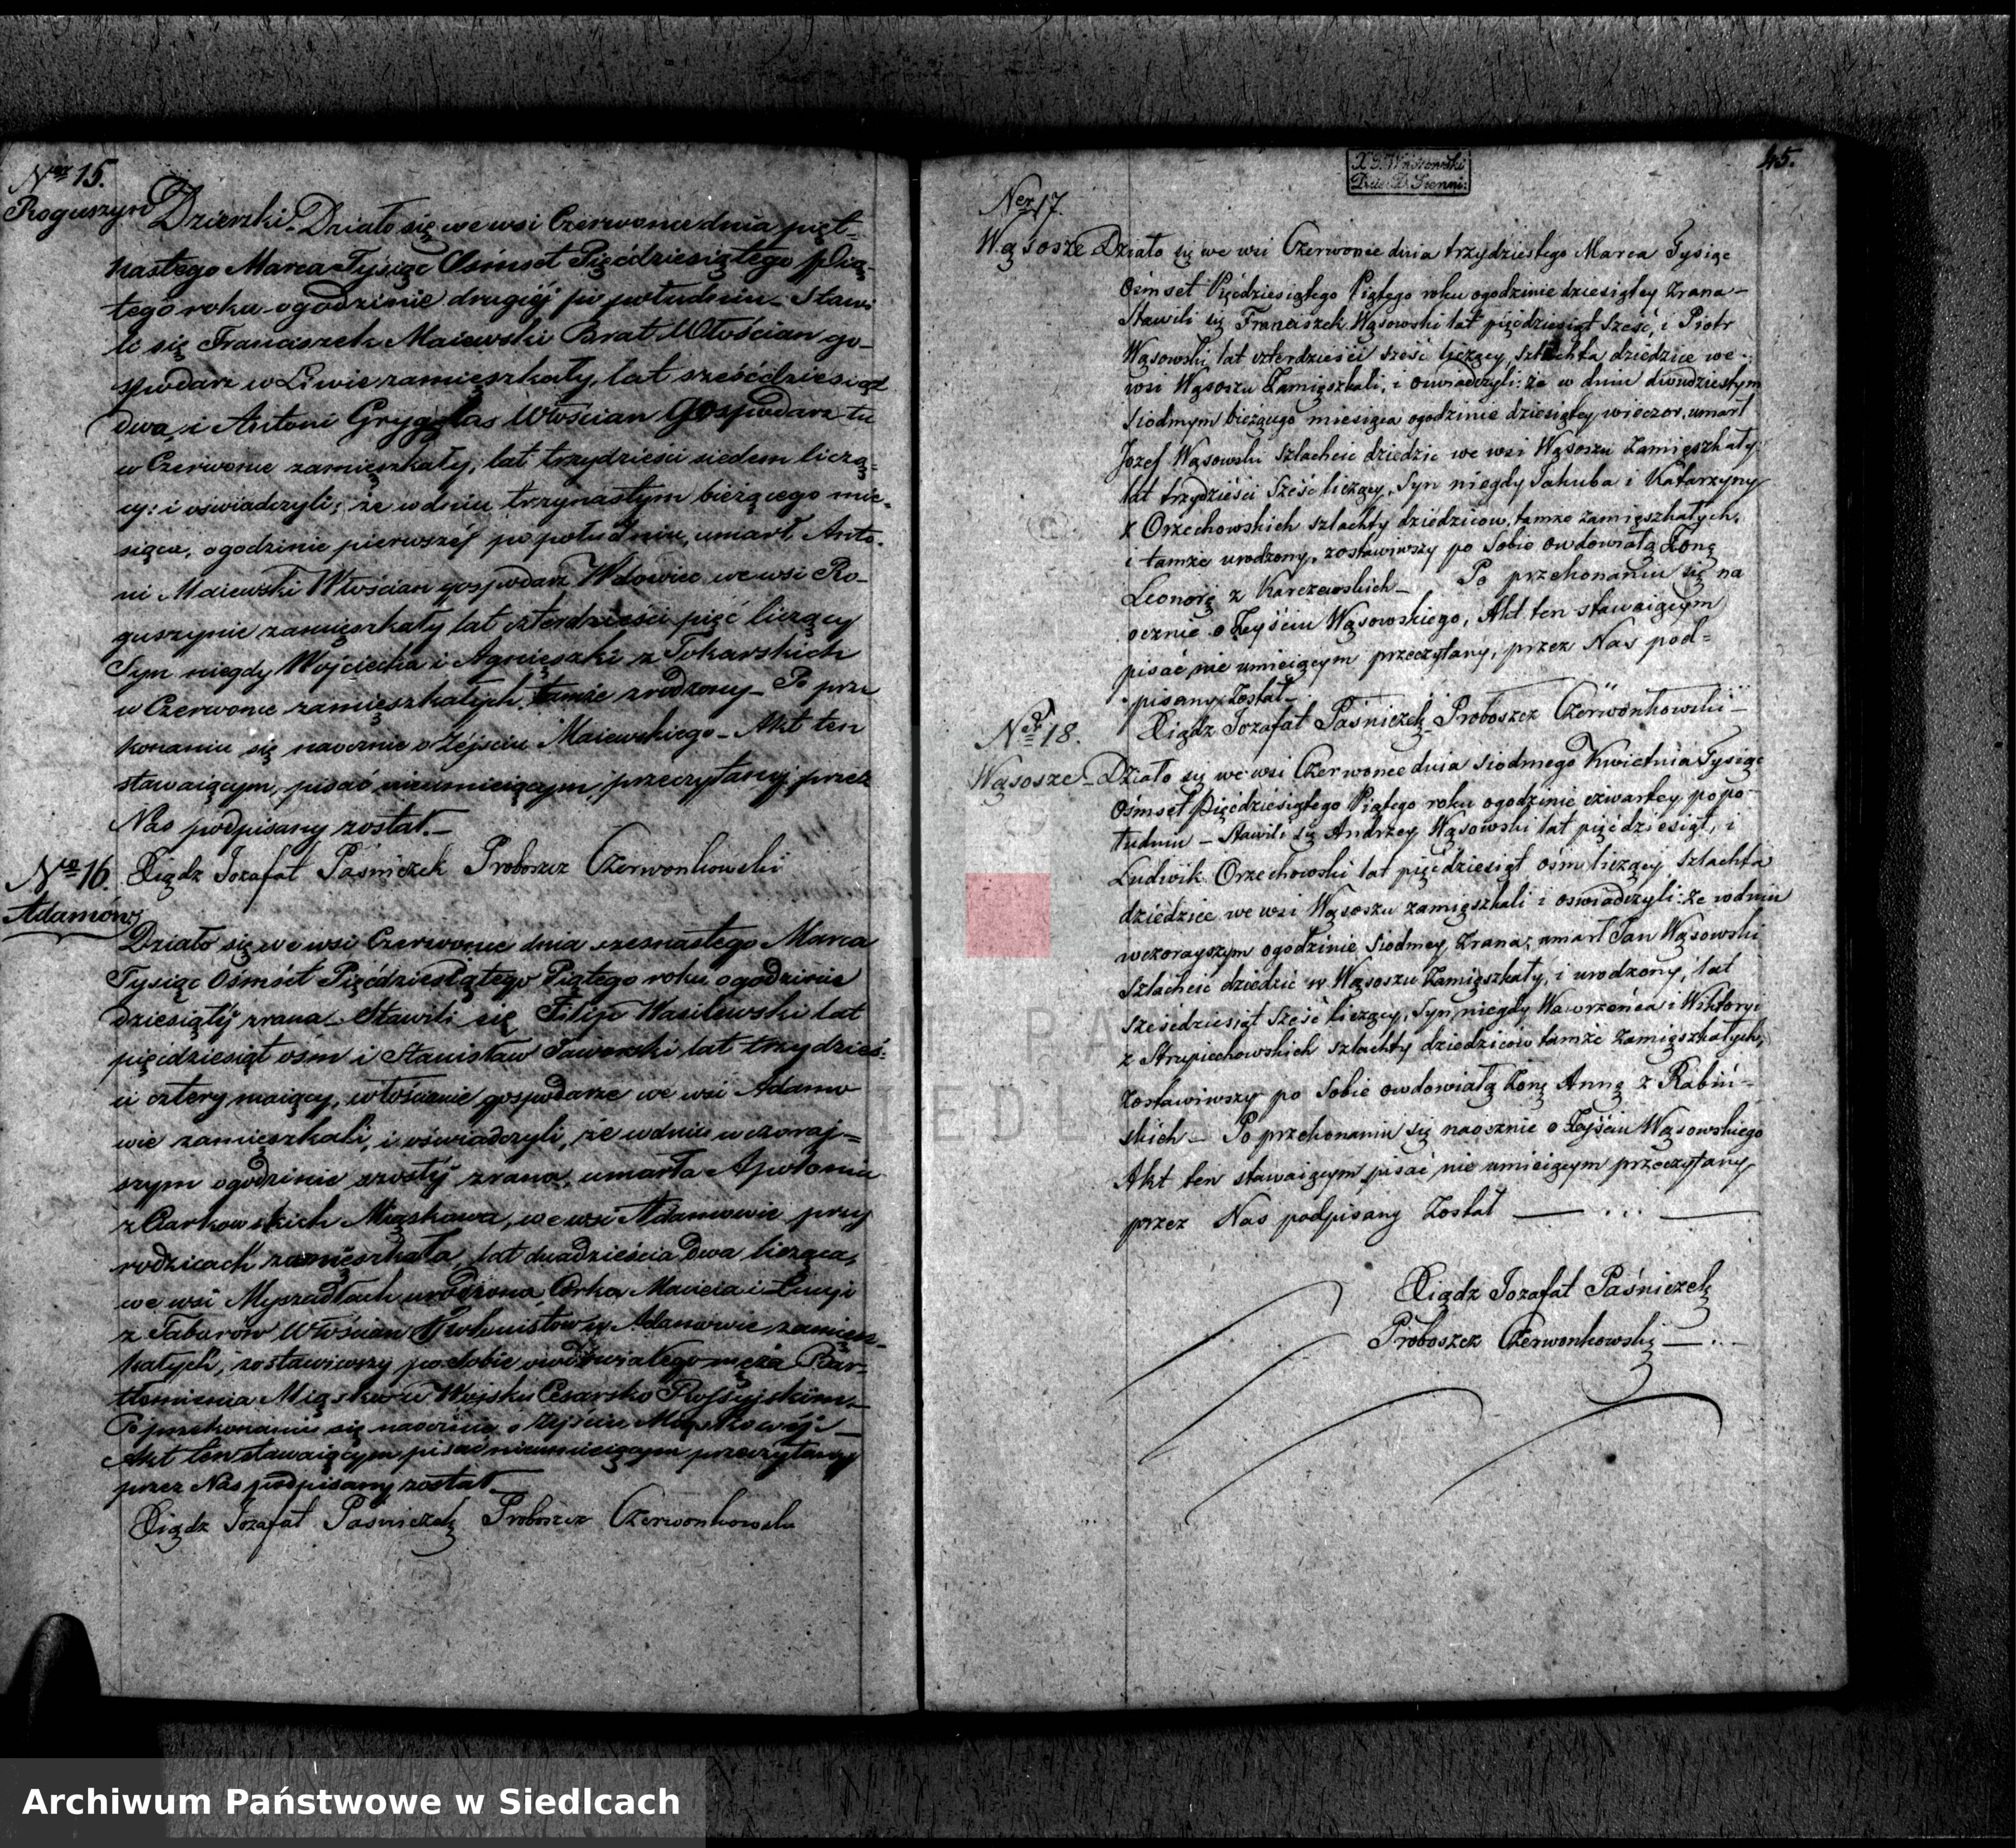 Ner 15.
Roguszyn Dzierzki. Działo się we wsi Czerwonce dnia pięt-
nastego Marca Tysiąc Ośmset Pięćdziesiątego Pią-
tego roku ogodzinie drugiéj po południu Stawi
li się Franciszek Maiewski Brat Włościan go-
spodarz w Liwie zamieszkały, lat sześćdziesiąt
dwa, i Antoni Grygelas Włościan Gospodarz tu
w Czerwonce zamięszkały, lat trzydzieści siedem liczą-
cy: i oświadczyli; że w dniu trzynastym bieżącego mie-
siąca, ogodzinie pierwszéj po południu, umarł Anto-
ni Maiewski Włościan gospodarz Wdowiec we wsi Ro-
guszynie zamięszkały lat czterdzieści pięć liczący
Syn niegdy Wojciecha i Agnieszki z Tokarskich
w Czerwonce zamięszkałych, tamże zrodzony – Po prze
konaniu się naocznie o Zéjściu Maiewskiego – Akt ten
stawaiącym, pisać nieumieiącym, przeczytany przez
Nas podpisany został. –
Xiądz Jozafat Paśniczek Proboszcz Czerwonkowski
Nro 16.
Adamów
Działo się we wsi Czerwonce dnia szesnastego Marca
Tysiąc Ośmset Pięćdziesiątego Piątego roku, ogodzinie
dziesiątéj zrana – Stawili się Filip Wasilewski lat
pięćdziesiąt ośm i Stanisław Jaworski lat trzydzieś-
ci cztery maiący, włościanie gospodarze we wsi Adamo
wie zamięszkali, i oświadczyli, że w dniu wczoraj-
szym ogodzinie szostéj zrana, umarła Apolonia
z Ciarkowskich Miąskowa, we wsi Adamowie przy
rodzicach zamięszkała, lat dwadzieścia dwa licząca,
we wsi Myszadłach urodzona, Córka Macieia i Łucyi
z Taborów Włościan Kolonistów w Adamowie zamiesz-
kałych, zostawiwszy po sobie owdowiałego męża Bar-
tłomieia Miąska w Wojsku Cesarsko Rossyjskim. –
Po przekonaniu się naocznie o zejściu Miąskowéj –
Akt ten stawaiącym pisać nieumieiącym przeczytany
przez Nas podpisany został. –
Xiądz Jozafat Paśniczek Proboszcz Czerwonkowski
45.
Ner 17.
Wąsosze Działo się we wsi Czerwonce dnia trzydziestego Marca Tysiąc
Ośmset Pięćdziesiątego Piątego roku ogodzinie dziesiątey Zrana –
Stawili się Franciszek Wąsowski lat pięćdziesiąt sześć, i Piotr
Wąsowski lat czterdzieści sześć liczący, szlachta dziedzice we
wsi Wąsoszu Zamięszkali, i oswiadczyli: że w dniu dwudziestym
siodmym bieżącego miesiąca ogodzinie dziesiątey wieczor, umarł
Jozef Wąsowski Szlachcic dziedzic we wsi Wąsoszu Zamięszkały
lat trzydzieści sześć liczący, Syn niegdy Jakuba i Katarzyny
z Orzechowskich szlachty dziedziców, tamże Zamięszkałych,
i tamże urodzony, zostawiwszy po Sobie owdowiałą Żonę
Leonorę z Karczewskich – Po przekonaniu się na
ocznie o Zeyściu Wąsowskiego, Akt ten stawaiącym
pisać nie umieiącym przeczytany, przez Nas pod=
pisany Został –
Xiądz Jozafat Paśniczek Proboszcz Czerwonkowski –
Nr 18.
Wąsosze – Działo się we wsi Czerwonce dnia siodmego Kwietnia Tysiąc
Ośmset Pięćdziesiątego Piątego roku ogodzinie czwartey popo-
łudniu – Stawili się Andrzey Wąsowski lat pięćdziesiąt, i
Ludwik Orzechowski lat pięćdziesiąt ośm liczący, Szlachta
dziedzice we wsi Wąsoszu zamięszkali i oswiadczyli: że w dniu
wczorayszym ogodzinie Siodmey Zrana, umarł Jan Wąsowski
Szlachcic dziedzic w Wąsoszu Zamięszkały, i urodzony, lat
sześćdziesiąt sześć liczący, Syn niegdy Wawrzeńca i Wiktoryi
z Strupiechowskich szlachty dziedziców tamże Zamięszkałych,
Zostawiwszy po Sobie owdowiałą Żonę Annę z Rabiń-
skich – Po przekonaniu się naocznie o Zeyściu Wąsowskiego
Akt ten stawaiącym pisać nie umieiącym przeczytany
przez Nas podpisany Został
Xiądz Jozafat Paśniczek
Proboszcz Czerwonkowski
Archiwum Państwowe w Siedlcach